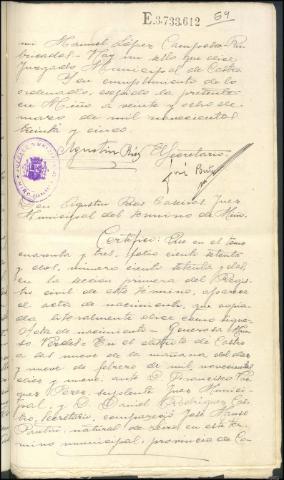 E.3.733.612 59
mi Manuel López Campos
bricados= Hay un sello que dice:
Juzgado Municipal de Castro
Y en cumplimiento de lo
ordenado, expido la presente
en Miño a veinte y ocho de
marzo de mil novecientos
treinta y cinco.
Agustín El Secretario
José
Don Agustín Juez
Municipal del término de Miño.
Certifico: Que en el tomo
cuarenta y tres, folio ciento setenta
y dos, número ciento setenta y dos,
en la sección primera del Regis-
tro civil de este término, aparece
el acta de nacimiento, que copia-
da literalmente dice como sigue:
Acta de nacimiento= Generosa
En el distrito de Castro
a las nueve de la mañana del diez
y nueve de febrero de mil novecientos
diez y nueve, ante D. Francisco
Perez, suplente Juez Munici-
pal, y D. Daniel Rodriguez
Secretario, compareció José
natural de en este tér-
mino municipal, provincia de Co-